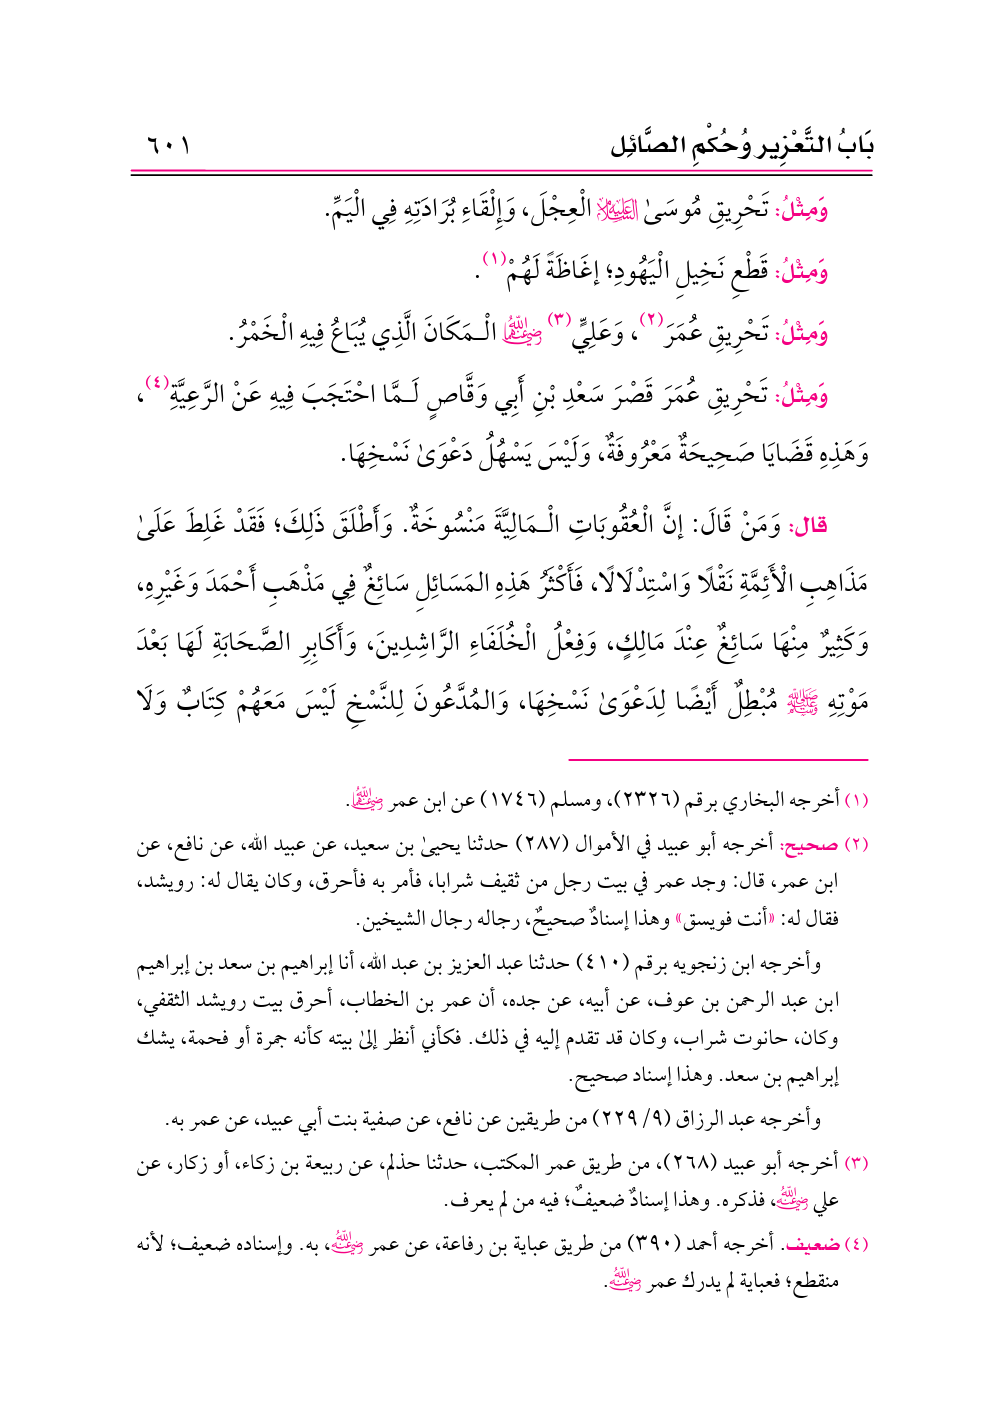 بَابُ التَّعْزِيرِ وُحُكْمِ الصَّائِل ٦٠١
وَمِثْلُ: تَحْرِيقِ مُوسَىٰ عليه السلام الْعِجْلَ، وَإِلْقَاءِ بُرَادَتِهِ فِي الْيَمِّ.
وَمِثْلُ: قَطْعِ نَخِيلِ الْيَهُودِ؛ إغَاظَةً لَهُمْ(١).
وَمِثْلُ: تَحْرِيقِ عُمَرَ(٢)، وَعَلِيٍّ(٣) رضي الله عنهما الْـمَكَانَ الَّذِي يُبَاعُ فِيهِ الْخَمْرُ.
وَمِثْلُ: تَحْرِيقِ عُمَرَ قَصْرَ سَعْدِ بْنِ أَبِي وَقَّاصٍ لَـمَّا احْتَجَبَ فِيهِ عَنْ الرَّعِيَّةِ(٤)،
وَهَذِهِ قَضَايَا صَحِيحَةٌ مَعْرُوفَةٌ، وَلَيْسَ يَسْهُلُ دَعْوَىٰ نَسْخِهَا.
قال: وَمَنْ قَالَ: إنَّ الْعُقُوبَاتِ الْـمَالِيَّةَ مَنْسُوخَةٌ. وَأَطْلَقَ ذَلِكَ؛ فَقَدْ غَلِطَ عَلَىٰ
مَذَاهِبِ الْأَئِمَّةِ نَقْلًا وَاسْتِدْلَالًا، فَأَكْثَرُ هَذِهِ المَسَائِلِ سَائِغٌ فِي مَذْهَبِ أَحْمَدَ وَغَيْرِهِ،
وَكَثِيرٌ مِنْهَا سَائِغٌ عِنْدَ مَالِكٍ، وَفِعْلُ الْخُلَفَاءِ الرَّاشِدِينَ، وَأَكَابِرِ الصَّحَابَةِ لَهَا بَعْدَ
مَوْتِهِ ﷺ مُبْطِلٌ أَيْضًا لِدَعْوَىٰ نَسْخِهَا، وَالمُدَّعُونَ لِلنَّسْخِ لَيْسَ مَعَهُمْ كِتَابٌ وَلَا
(١) أخرجه البخاري برقم (٢٣٢٦)، ومسلم (١٧٤٦) عن ابن عمر رضي الله عنهما.
(٢) صحيح: أخرجه أبو عبيد في الأموال (٢٨٧) حدثنا يحيىٰ بن سعيد، عن عبيد الله، عن نافع، عن
ابن عمر، قال: وجد عمر في بيت رجل من ثقيف شرابا، فأمر به فأحرق، وكان يقال له: رويشد،
فقال له: «أنت فويسق» وهذا إسنادٌ صحيحٌ، رجاله رجال الشيخين.
وأخرجه ابن زنجويه برقم (٤١٠) حدثنا عبد العزيز بن عبد الله، أنا إبراهيم بن سعد بن إبراهيم
ابن عبد الرحمن بن عوف، عن أبيه، عن جده، أن عمر بن الخطاب، أحرق بيت رويشد الثقفي،
وكان، حانوت شراب، وكان قد تقدم إليه في ذلك. فكأني أنظر إلىٰ بيته كأنه جمرة أو فحمة، يشك
إبراهيم بن سعد. وهذا إسناد صحيح.
وأخرجه عبد الرزاق (٩/ ٢٢٩) من طريقين عن نافع، عن صفية بنت أبي عبيد، عن عمر به.
(٣) أخرجه أبو عبيد (٢٦٨)، من طريق عمر المكتب، حدثنا حذلم، عن ربيعة بن زكاء، أو زكار، عن
علي رضي الله عنه، فذكره. وهذا إسنادٌ ضعيفٌ؛ فيه من لم يعرف.
(٤) ضعيف. أخرجه أحمد (٣٩٠) من طريق عباية بن رفاعة، عن عمر رضي الله عنه، به. وإسناده ضعيف؛ لأنه
منقطع؛ فعباية لم يدرك عمر رضي الله عنه.